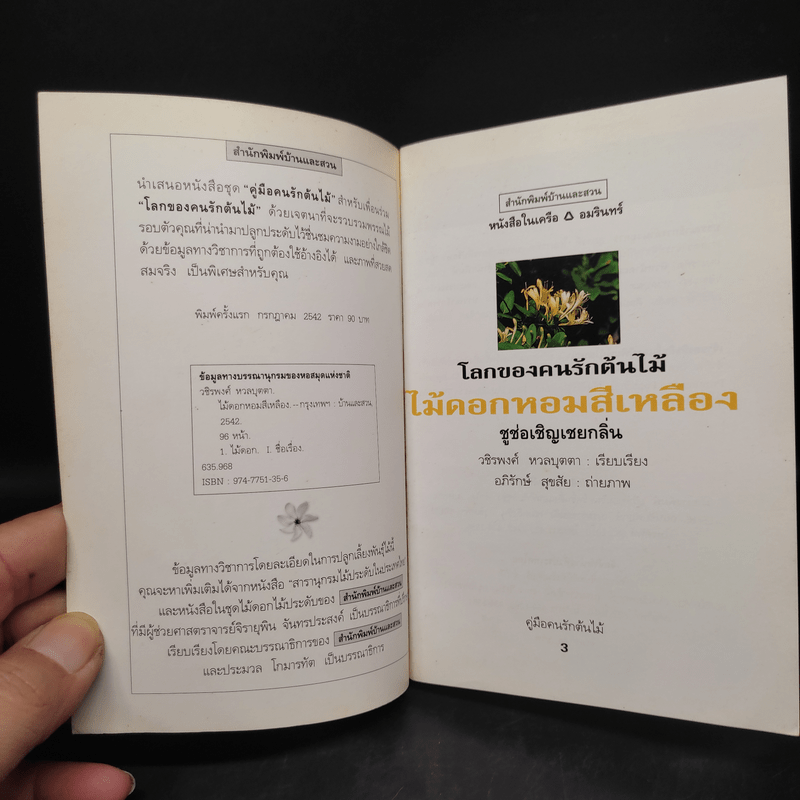 สำนักพิมพ์บ้านและสวน
นำเสนอหนังสือชุด "คู่มือคนรักต้นไม้" สำหรับเพื่อนร่วม
"โลกของคนรักต้นไม้" ด้วยเจตนาที่จะรวบรวมพรรณไม้
รอบตัวคุณที่น่านำมาปลูกประดับไว้ชื่นชมความงามอย่างใกล้ชิด
ด้วยข้อมูลทางวิชาการที่ถูกต้องใช้อ้างอิงได้ และภาพที่สวยสด
สมจริง เป็นพิเศษสำหรับคุณ
พิมพ์ครั้งแรก กรกฎาคม 2542 ราคา 90 บาท
ข้อมูลทางบรรณานุกรมของหอสมุดแห่งชาติ
วชิรพงศ์ หวลบุตตา.
ไม้ดอกหอมสีเหลือง.--กรุงเทพฯ : บ้านและสวน,
2542.
96 หน้า.
1. ไม้ดอก. I. ชื่อเรื่อง.
635.968
ISBN : 974-7751-35-6
ข้อมูลทางวิชาการโดยละเอียดในการปลูกเลี้ยงพันธุ์ไม้นี้
คุณจะหาเพิ่มเติมได้จากหนังสือ "สารานุกรมไม้ประดับในประเทศไทย"
และหนังสือในชุดไม้ดอกไม้ประดับของ สำนักพิมพ์บ้านและสวน
ที่มีผู้ช่วยศาสตราจารย์จิรายุพิน จันทรประสงค์ เป็นบรรณาธิการที่ปรึกษา
เรียบเรียงโดยคณะบรรณาธิการของ สำนักพิมพ์บ้านและสวน
และประมวล โกมารทัต เป็นบรรณาธิการ
สำนักพิมพ์บ้านและสวน
หนังสือในเครือ อมรินทร์
โลกของคนรักต้นไม้
ไม้ดอกหอมสีเหลือง
ชูช่อเชิญเชยกลิ่น
วชิรพงศ์ หวลบุตตา : เรียบเรียง
อภิรักษ์ สุขสัย : ถ่ายภาพ
คู่มือคนรักต้นไม้
3